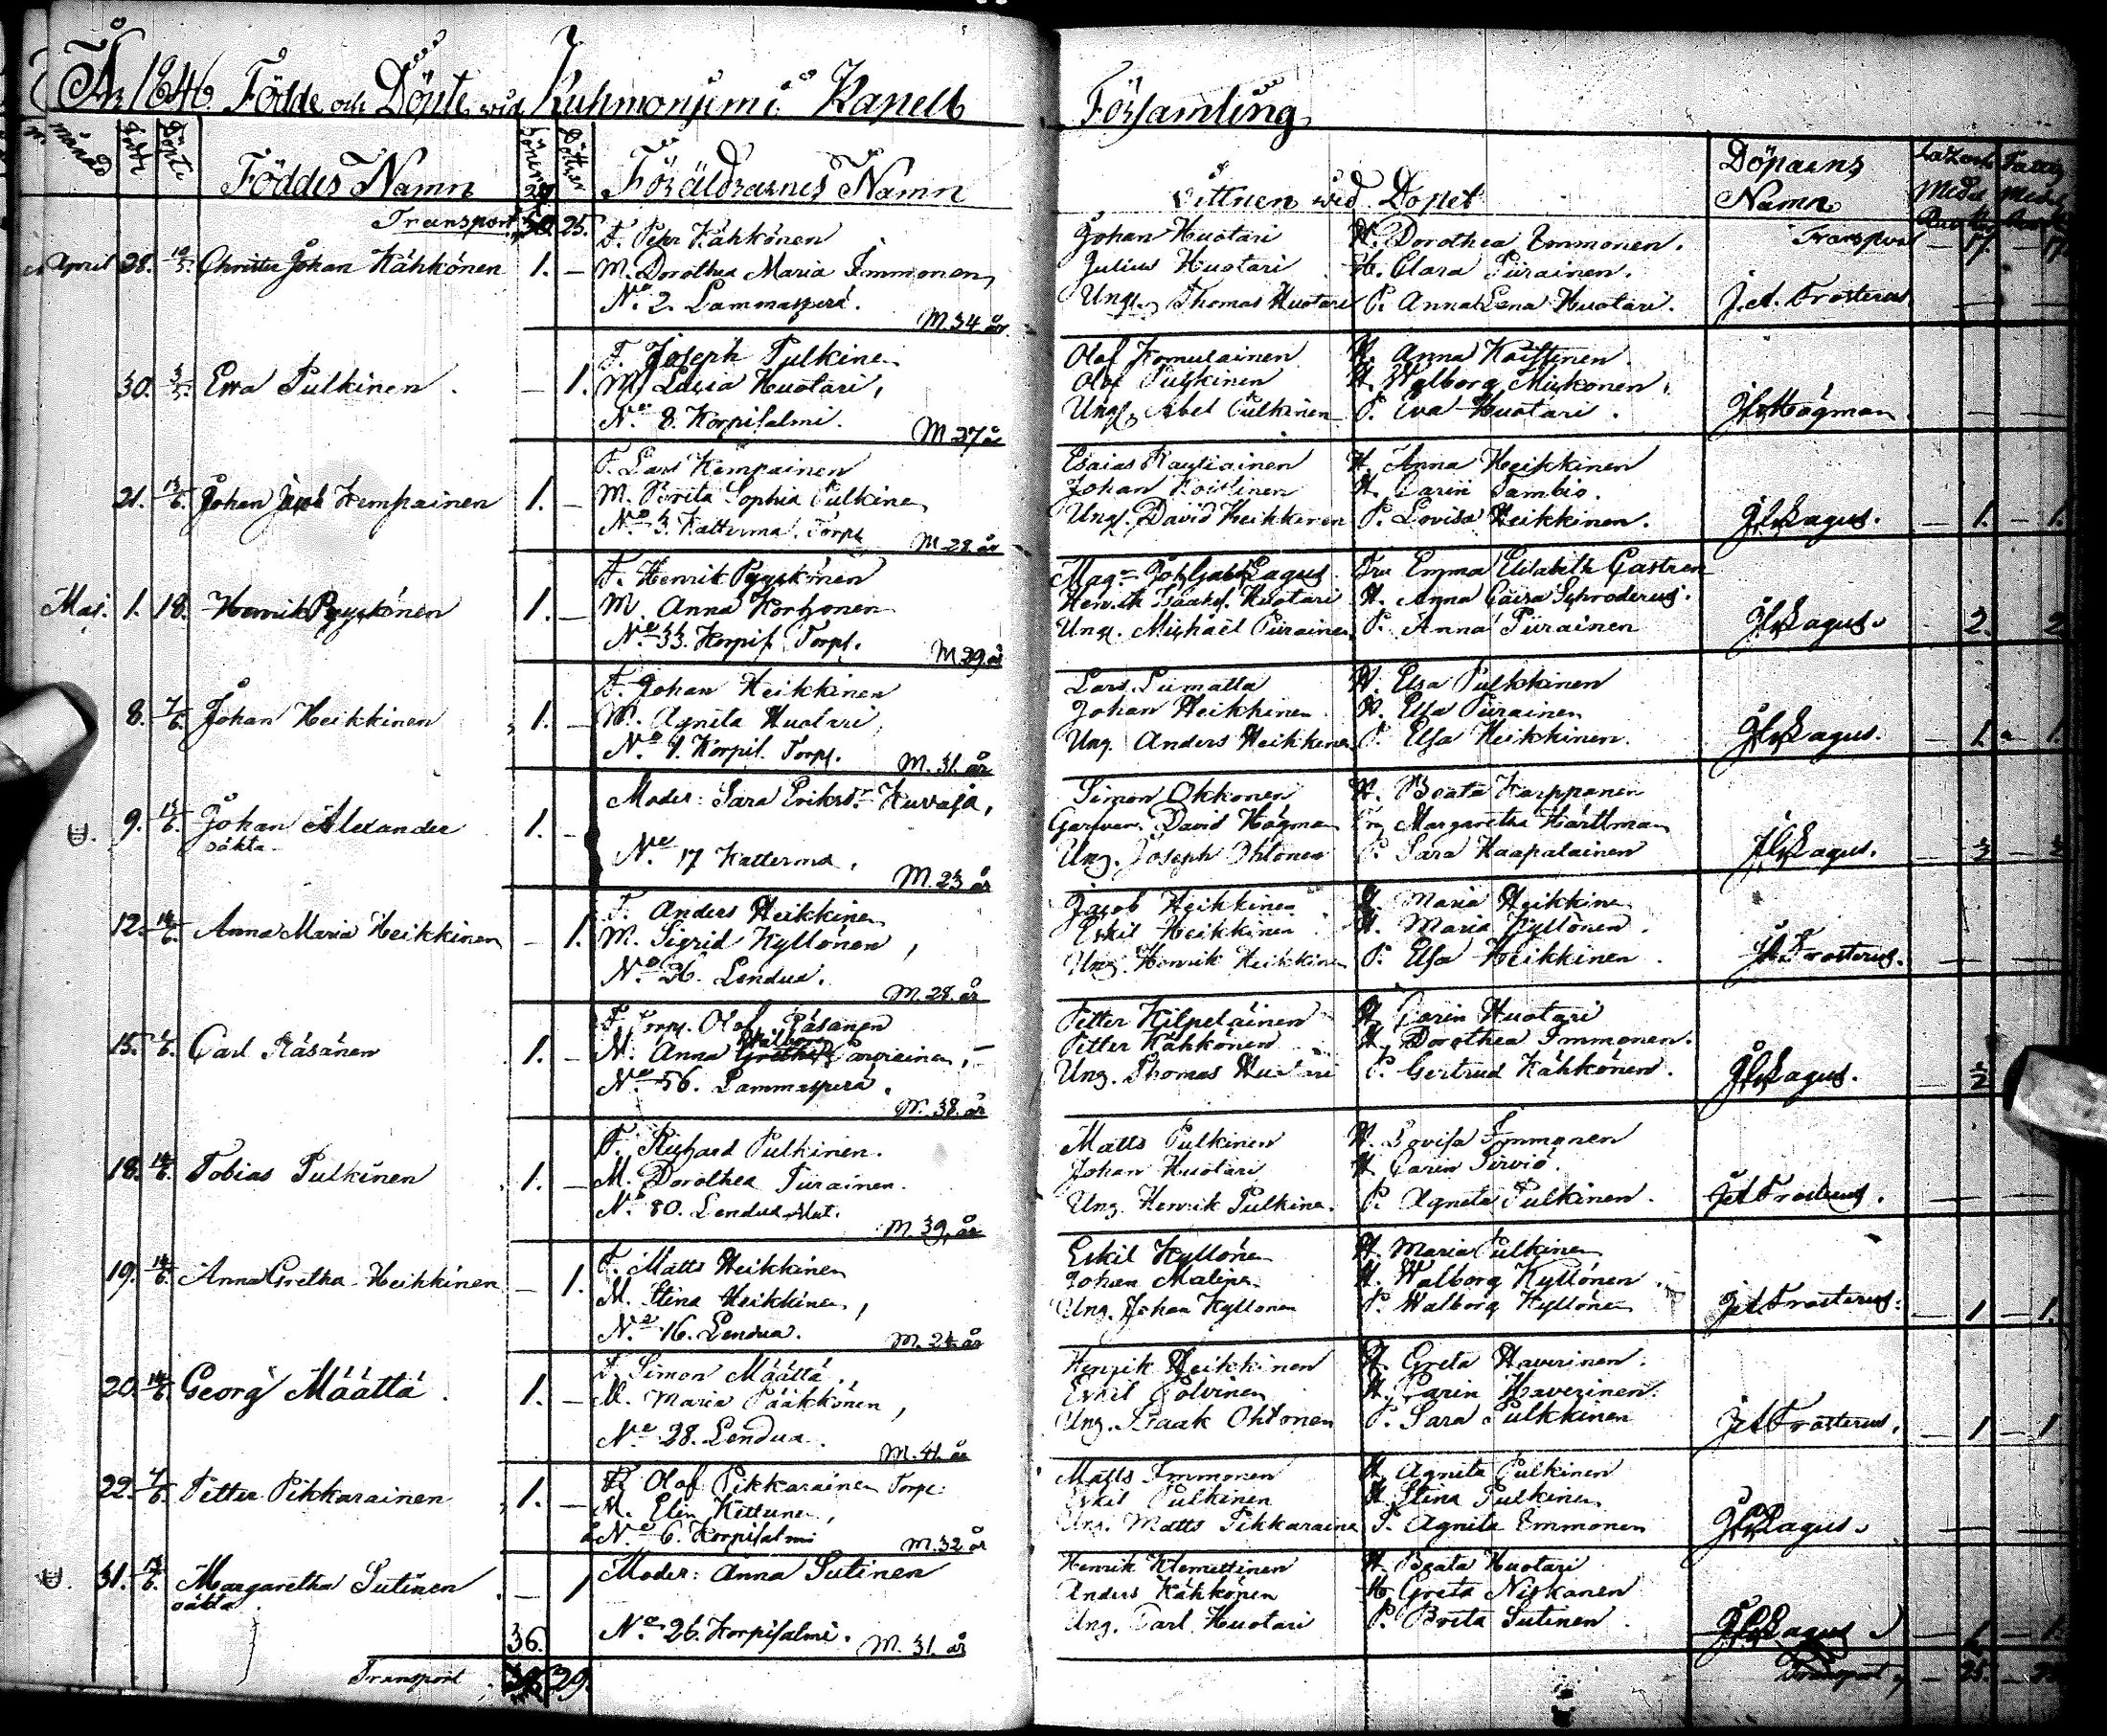 År 1846 Födde och Döpte wid Kuhmoniemi Kapells Församling
Månad Född Döpte Föddes Namn Söner Döttrar Föräldrarnes Namn Vittnen wid Dopet Döparens Namn
Transport 25. Transport 17. 17
F. Pehr Kähkönen Johan Huotari H. Dorothea Emmonen.
April 28. 10/5. Christer Johan Kähkönen 1. — M. Dorothea Maria Immonen, Julius Huotari H. Clara Piirainen.
No 2. Lammasperä. Ungl. Thomas Huotari P. Anna Lena Huotari. J. A. Frosterus
M 34 år
F. Joseph Pulkinen Olof Komulainen H. Anna Koistinen.
30. 3/5. Ewa Pulkinen. — 1. M. Lucia Huotari, Olof Pulkinen H. Walborg Miskonen.
No 8. Korpisalmi. Ungl. Abel Pulkinen P. Eva Huotari. Högman
M 27 år
F. Lars Kempainen Esaias Rautiainen H. Anna Heikkinen
21. 13/6. Johan Jacob Kempainen 1. — M. Brita Sophia Pulkinen Johan Koistinen H. Carin Tambio.
No 3. Katterma. Torp. Ungl. David Heikkinen P. Lovisa Heikkinen. Lagus. — 1. — 1.
M. 28. år
F. Henrik Pyykönen Mag. Joh Gabr Lagus Fru Emma Elisabeth Castren
Maj. 1. 18. Henrik Pyykönen 1. — M. Anna Korhonen Henrik Isaaks. Huotari H. Anna Caisa Schroderus.
No 33. Korpis. Torp. Ung. Michael Piirainen P. Anna Piirainen Lagus. 2. 2
M 29 år
F. Johan Heikkinen Lars Liimatta H. Elsa Pulkkinen
8. 7/6. Johan Heikkinen 1. — M. Agnita Huotari, Johan Heikkinen H. Elsa Piirainen
No 4. Korpis. Torp. Ung. Anders Heikkinen P. Elsa Heikkinen. Lagus. — 1. 1.
M. 31. år
Moder: Sara Eriksdr Kuvaja, Simon Okkonen H. Beata Karppanen
9. 13/6. Johan Alexander 1. — Garfvar. David Högman Margaretha Härttman
oäkta No 17 Katterma, Ung. Joseph Ohtonen P. Sara Haapalainen Lagus.
M. 23 år
F. Anders Heikkinen Jacob Heikkinen H. Maria Heikkinen
12. 14/6. Anna Maria Heikkinen — 1. M. Sigrid Kyllönen, Eskil Heikkinen H. Maria Kyllönen.
No 26. Lendua. Ung. Henrik Heikkinen P. Elsa Heikkinen. Frosterus.
M. 28. år
F. Torp. Olof Räsänen Petter Kilpeläinen H. Carin Huotari
15. 7/6. Carl Räsänen 1. — M. Anna Walborg Parviainen, Petter Kähkönen H. Dorothea Immonen.
No 56. Lammasperä. Ung. Thomas Huotari P. Gertrud Kähkönen. Lagus. — 1/2
M. 38. år
F. Richard Pulkinen. Matts Pulkinen H. Lovisa Immonen
18. 14/6. Tobias Pulkinen 1. — M. Dorothea Piirainen. Johan Huotari H. Carin Sirviö.
No 80. Lendua. Ung. Henrik Pulkinen. P. Agneta Pulkinen. J. A. Frosterus.
M. 39, år
F. Matts Heikkinen Eskil Kyllönen H. Maria Pulkinen
19. 14/6. Anna Gretha Heikkinen — 1. M. Stina Heikkinen, Johan Malinen H. Walborg Kyllönen.
No 16. Lendua. Ung. Johan Kyllönen P. Walborg Kyllönen J A Frosterus. — 1 — 1.
M. 24 år
F. Simon Määttä, Henrik Heikkinen H. Greta Haverinen.
20. 14/6. Georg Määttä. 1. — M. Maria Pääkkönen, Eskil Polvinen H. Carin Haverinen.
No 28. Lendua. Ung. Isaak Ohtonen P. Sara Pulkkinen J A Frosterus. — 1 — 1
M. 41. år
F. Olof Pikkarainen Torp. Matts Immonen H. Agnita Pulkinen
22. 7/6. Petter Pikkarainen 1. — M. Elin Kettunen, Eskil Pulkinen H. Stina Pulkinen
No 6. Korpisalmi Ung. Matts Pikkarainen P. Agnita Emmonen Lagus.
M. 32 år
Moder: Anna Sutinen Henrik Klemettinen H. Beata Huotari
31. 13/6. Margaretha Sutinen — 1 Anders Kähkönen H. Greta Niskanen
oäkta. No 26. Korpisalmi. Ung. Carl Huotari P. Brita Sutinen. Lagus — 1 — 1
M. 31. år
36.
Transport 29. Transport — 25.